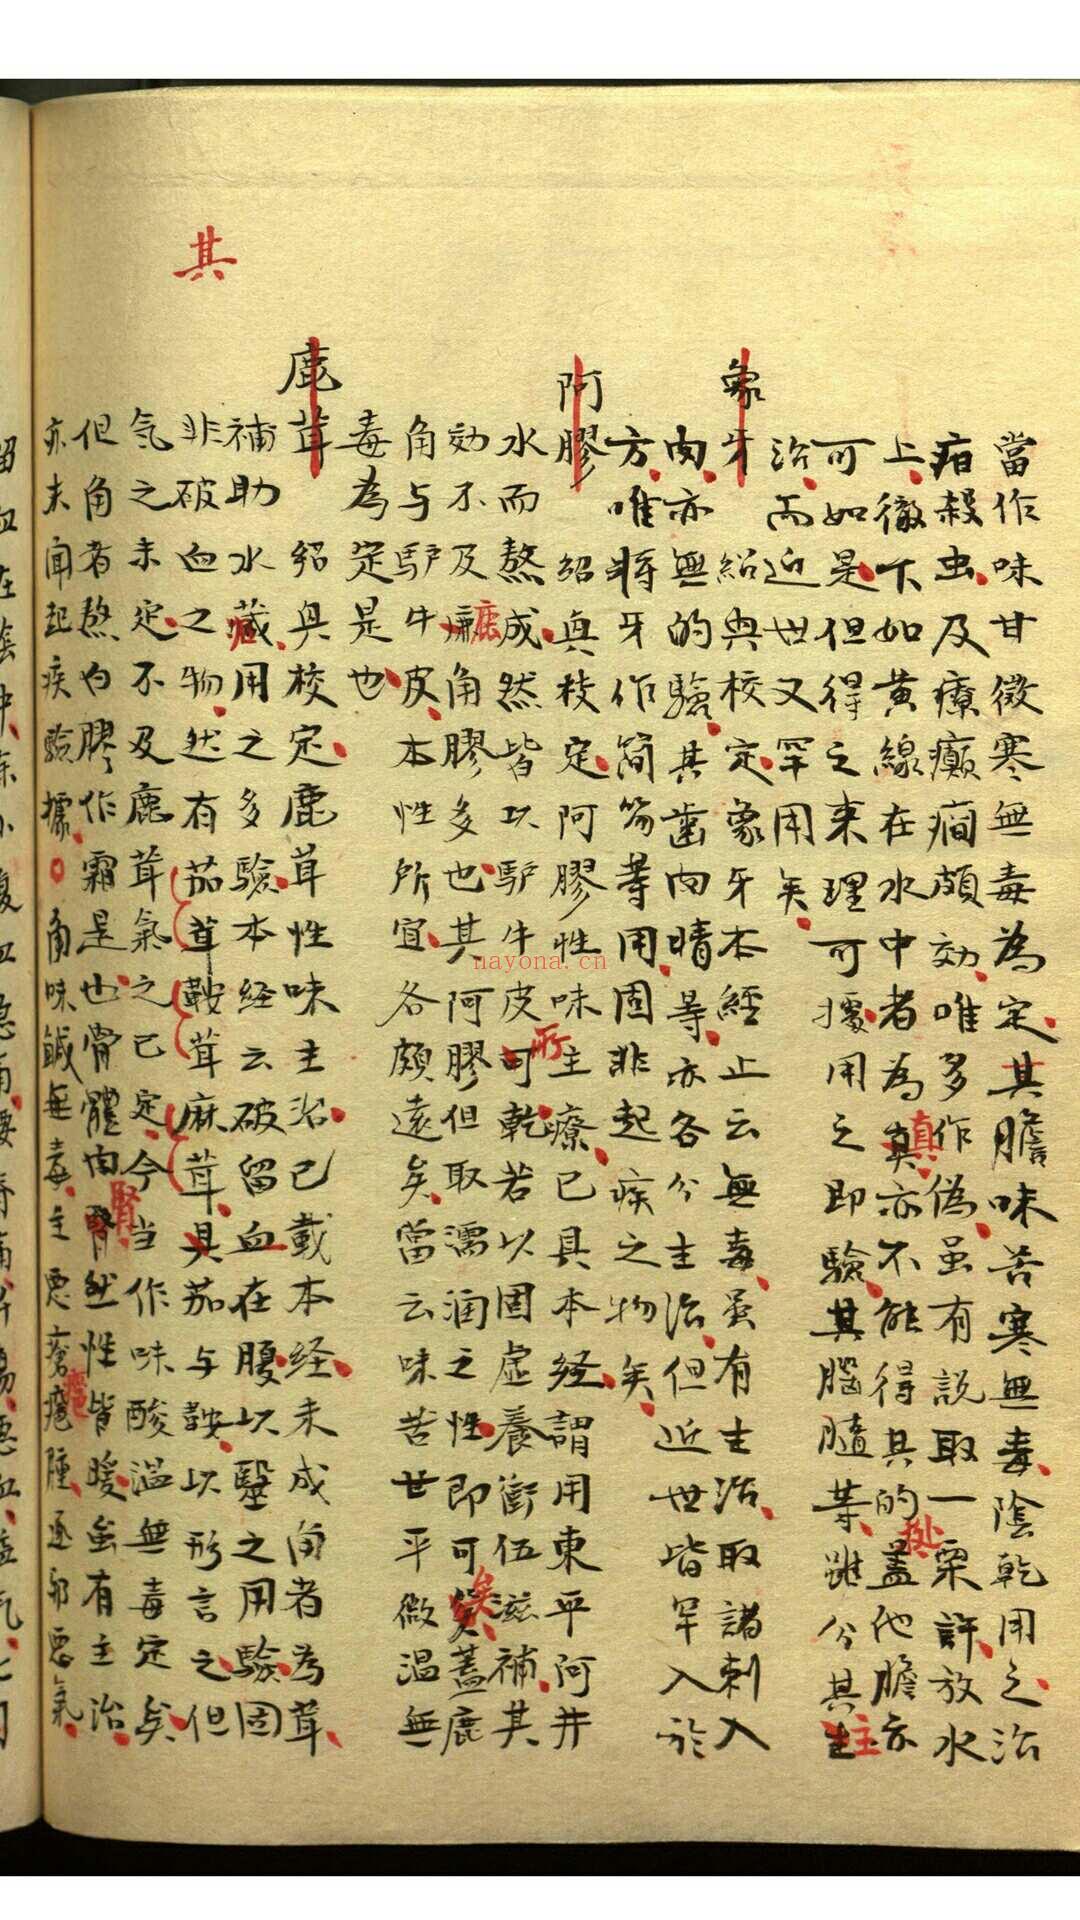 當作味甘微寒無毒為定其膽味苦寒無毒陰乾用之治
疳殺虫及療癲癇頗効唯多作偽虽有説取一粟許放水
上徹下如黃線在水中者為真亦不能得其的蓋他膽亦
可如是但得之来理可據用之即驗其腦髓等雖分其主
治而近世又罕用矣
象牙紹興校定象牙本經止云無毒虽有主治取諸刺入
肉亦無的驗其齒肉睛等亦各分主治但近世皆罕入於
方唯將牙作簡笏等用固非起疾之物矣
阿膠紹興校定阿膠性味主療已具本経謂用東平阿井
水而熬成然皆以馿牛皮可乾若以固虛養衝伍滋補其
効不及鹿角膠多也其阿膠但取濡润之性即可矣蓋鹿
角与馿牛皮本性所宜各頗遠矣當云味苦世平微温無
毒為定是也
鹿茸紹興校定鹿茸性味主治已載本経未成角者為茸
補助水藏用之多驗本経云破留血在腹以醫之用驗固
非破血之物然有茄茸鞍茸麻茸具茄与鞍以形言之但
気之未定不及鹿茸氣之已定今当作味酸温無毒定矣
但角者熬白膠作霜是也骨體肉腎然性皆暖虽有主治
亦未聞起疾驗據角味鹹無毒主悪瘡瘡腫逐邪悪氣
其
鹿
所
真
処
矣
主
腎
nayona.cn